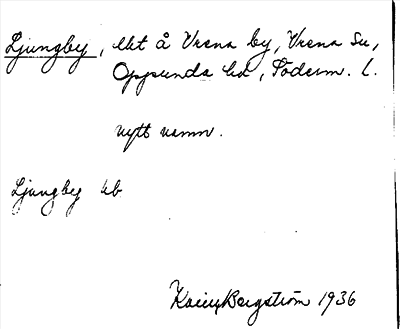 Ljungby, lht å Vrena by, Vrena Sn,
Oppunda hd, Söderm. l.
nytt namn.
Ljungby ub
Bergström 1936